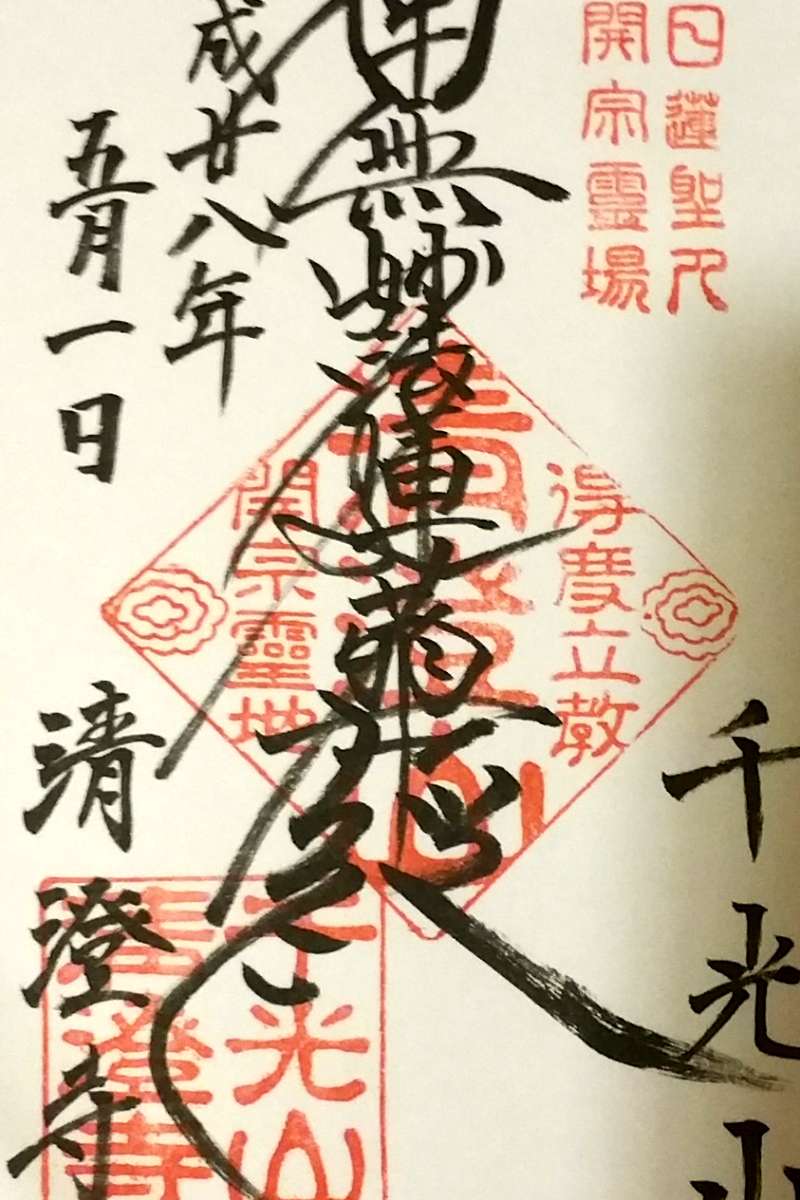 日蓮聖人
開宗靈場
千光山
南無妙法蓮華経
得度立教
清澄山
開宗靈地
成廿八年
五月一日
清澄寺
千光山
清澄寺